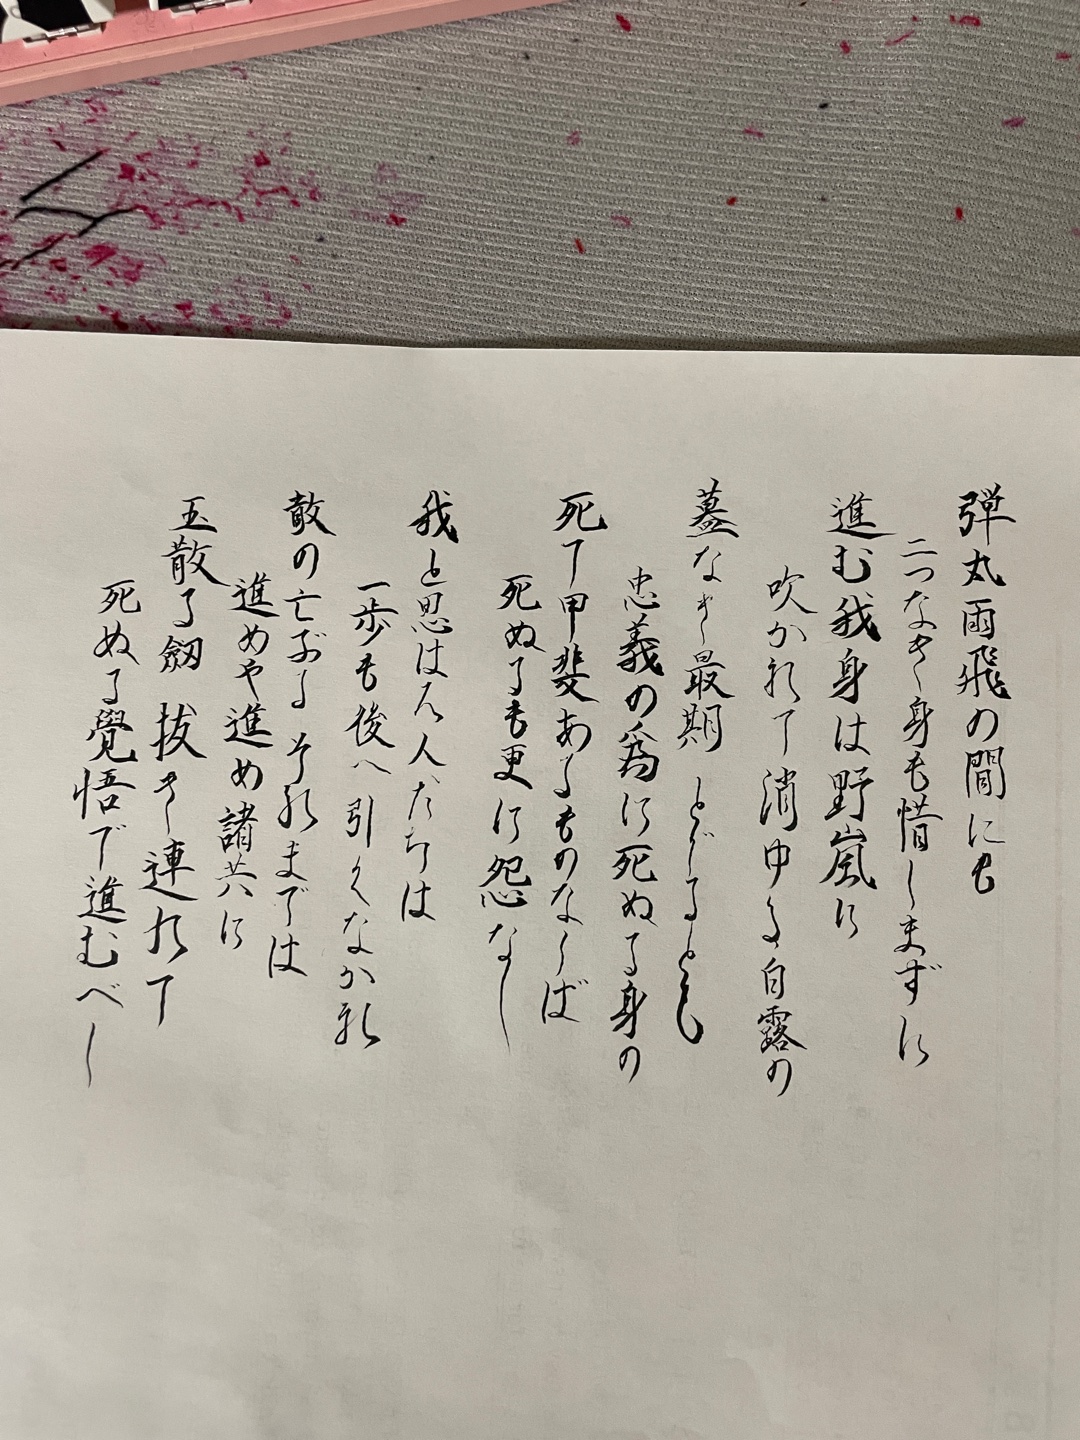 弾丸雨飛の間にも
二つなき身も惜しまずに
進む我身は野嵐に
吹かれて消ゆる白露の
墓なき最期とぐるとも
忠義の為に死ぬる身の
死て甲斐あるものならば
死ぬるも更に怨なし
我と思はん人たちは
一歩も後へ引くなかれ
敵の亡ぶるそれまでは
進めや進め諸共に
玉散る劔抜き連れて
死ぬる覺悟で進むべし